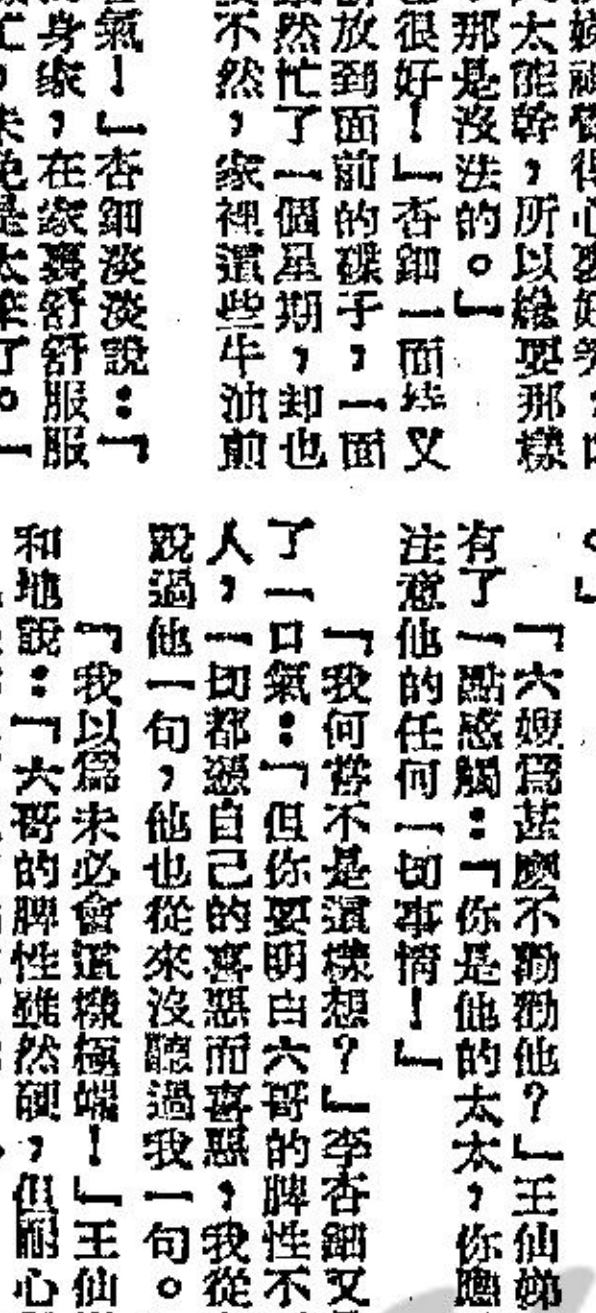 得心裏好
太能幹，所以纔要那樣
那是沒法的。」
很好！」杏細一面
放到面前的碟子，一面
然忙了一個星期，却也
不然，家裡這些牛油前
氣！」杏細淡淡說：「
身家，在家裏舒舒服服
忙，未免是太笨了。
「六嫂爲甚麼不勸勸他？」王仙娣
有了一點感觸：「你是他的太太，你應
注意他的任何一切事情！」
「我何嘗不是這樣想？」李杏細又
了一口氣：「但你要明白六哥的脾性不
人，一切都憑自己的喜惡而喜惡，我從
說過他一句，他也從來沒聽過我一句。
「我以爲未必會這樣極端！」王仙
和地說：「六哥的脾性雖然硬，但耐心